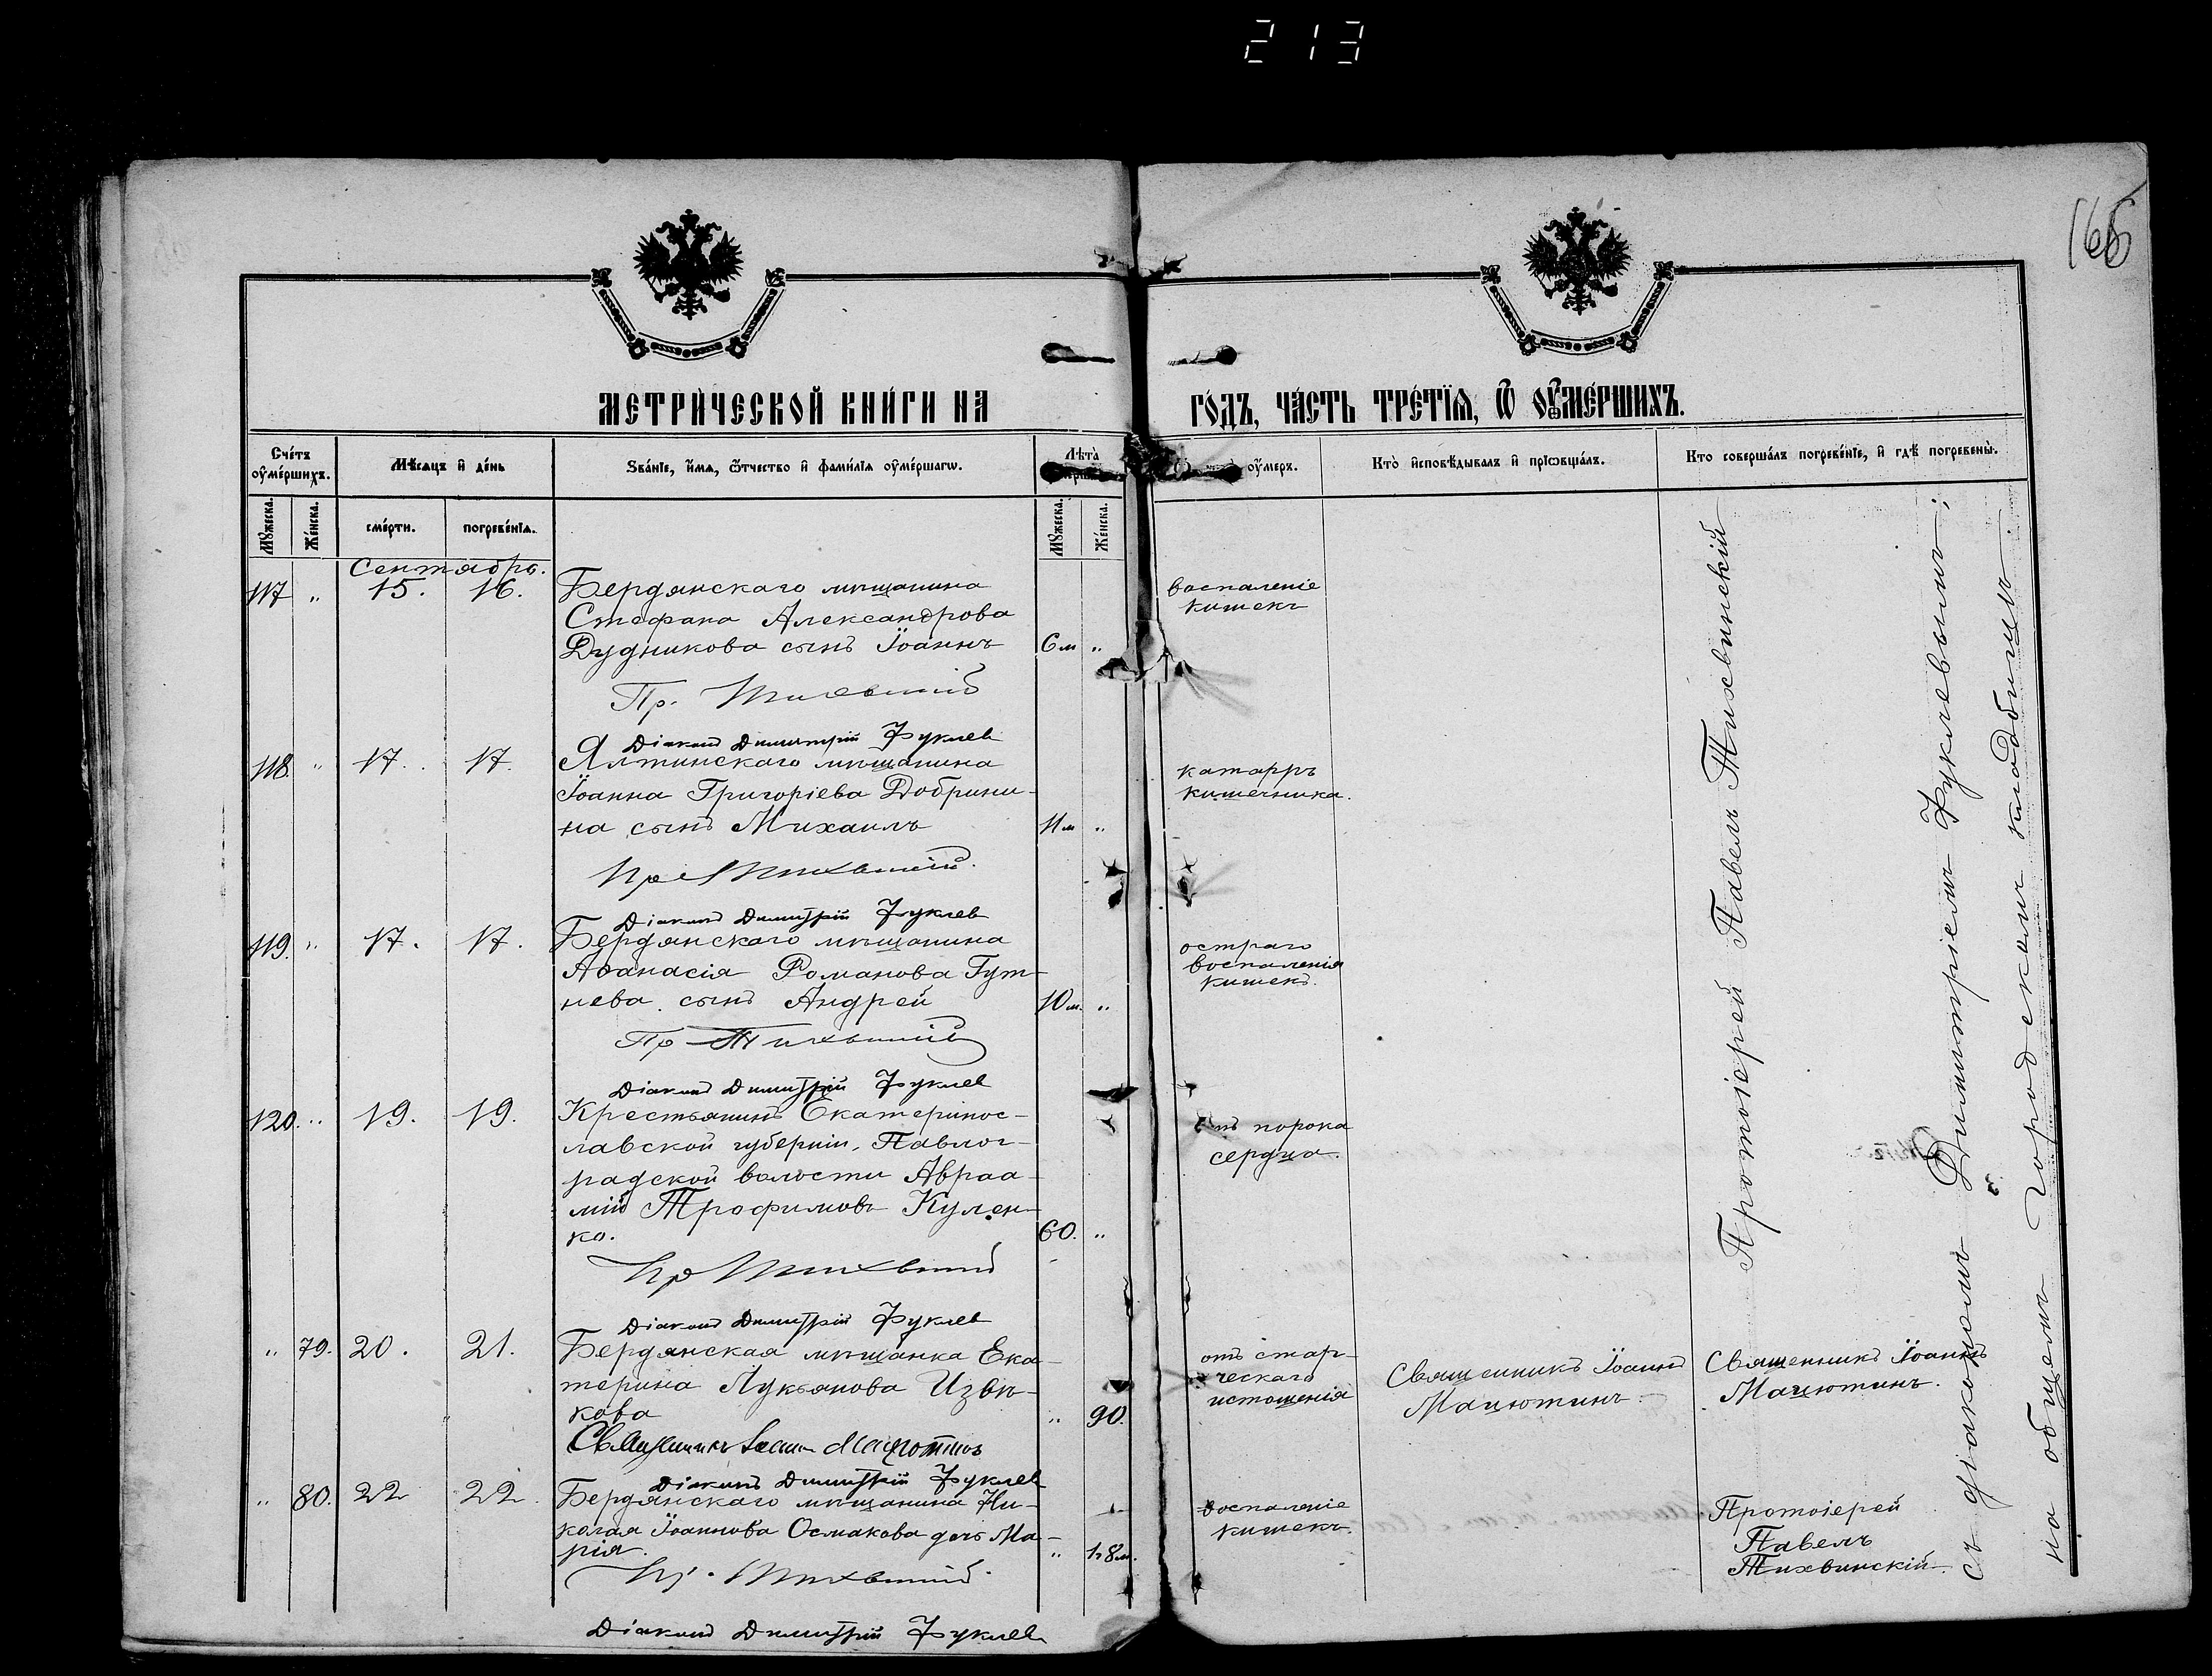 213
166
МЕТРИЧЕСКОЙ КНИГИ НА ГОДЪ, ЧАСТЬ ТРЕТІЯ, Ѿ ОУМЕРШИХЪ.
Счетъ оумершихъ.
Мѣсяцъ и день
Званіе, имя, ѿчество и фамилія оумершагѡ.
Лѣта
оумеръ.
Кто исповѣдывалъ и пріѡбщалъ.
Кто совершалъ погребеніе, и гдѣ погребены.
Мужеска.
Женска.
смерти.
погребенія.
Мужеска.
Женска.
Сентябрь.
117 " 15. 16. Бердянскаго мѣщанина
Стефана Александрова
Дудникова сынъ Іоаннъ 6 м "
воспаленіе
кишекъ
Пр. Тихвинскій
Діаконъ Димитрій Фуклев
118. " 17. 17. Ялтинскаго мѣщанина
Іоанна Григоріева Добрини-
на сынъ Михаилъ 11 м "
катарръ
кишечника.
Пр Тихвинскій.
Діаконъ Димитрій Фуклев
119. " 17. 17. Бердянскаго мѣщанина
Аѳанасія Романова Гут-
нева сынъ Андрей 10 м. "
остраго
воспаленія
кишекъ.
Пр Тихвинскій
Діаконъ Димитрій Фуклев
120. " 19. 19. Крестьянинъ Екатеринос-
лавской губерніи, Павлог-
радской волости Авраа-
мій Трофимовъ Кулен-
ко. 60. "
порока
сердца.
Пр Тихвинскій
Діаконъ Димитрій Фуклев
" 79. 20. 21. Бердянская мѣщанка Ека-
терина Лукьянова Извѣ-
кова " 90.
отъ стар-
ческаго
истощенія
Священникъ Іоаннъ
Мацютинъ.
Священникъ Іоаннъ
Мацютинъ.
Священникъ Іоаннъ Мацютинъ
Діаконъ Димитрій Фуклев
" 80. 22 22. Бердянскаго мѣщанина Ни-
колая Іоаннова Осмакова дочь Ма-
рія. " 1 г 8 м.
воспаленіе
кишекъ.
Протоіерей
Павелъ
Тихвинскій.
Пр. Тихвинскій.
Діаконъ Димитрій Фуклев
Протоіерей Павелъ Тихвинскій
съ діакономъ Димитріемъ Фуклевымъ;
на общемъ городскомъ кладбищѣ.